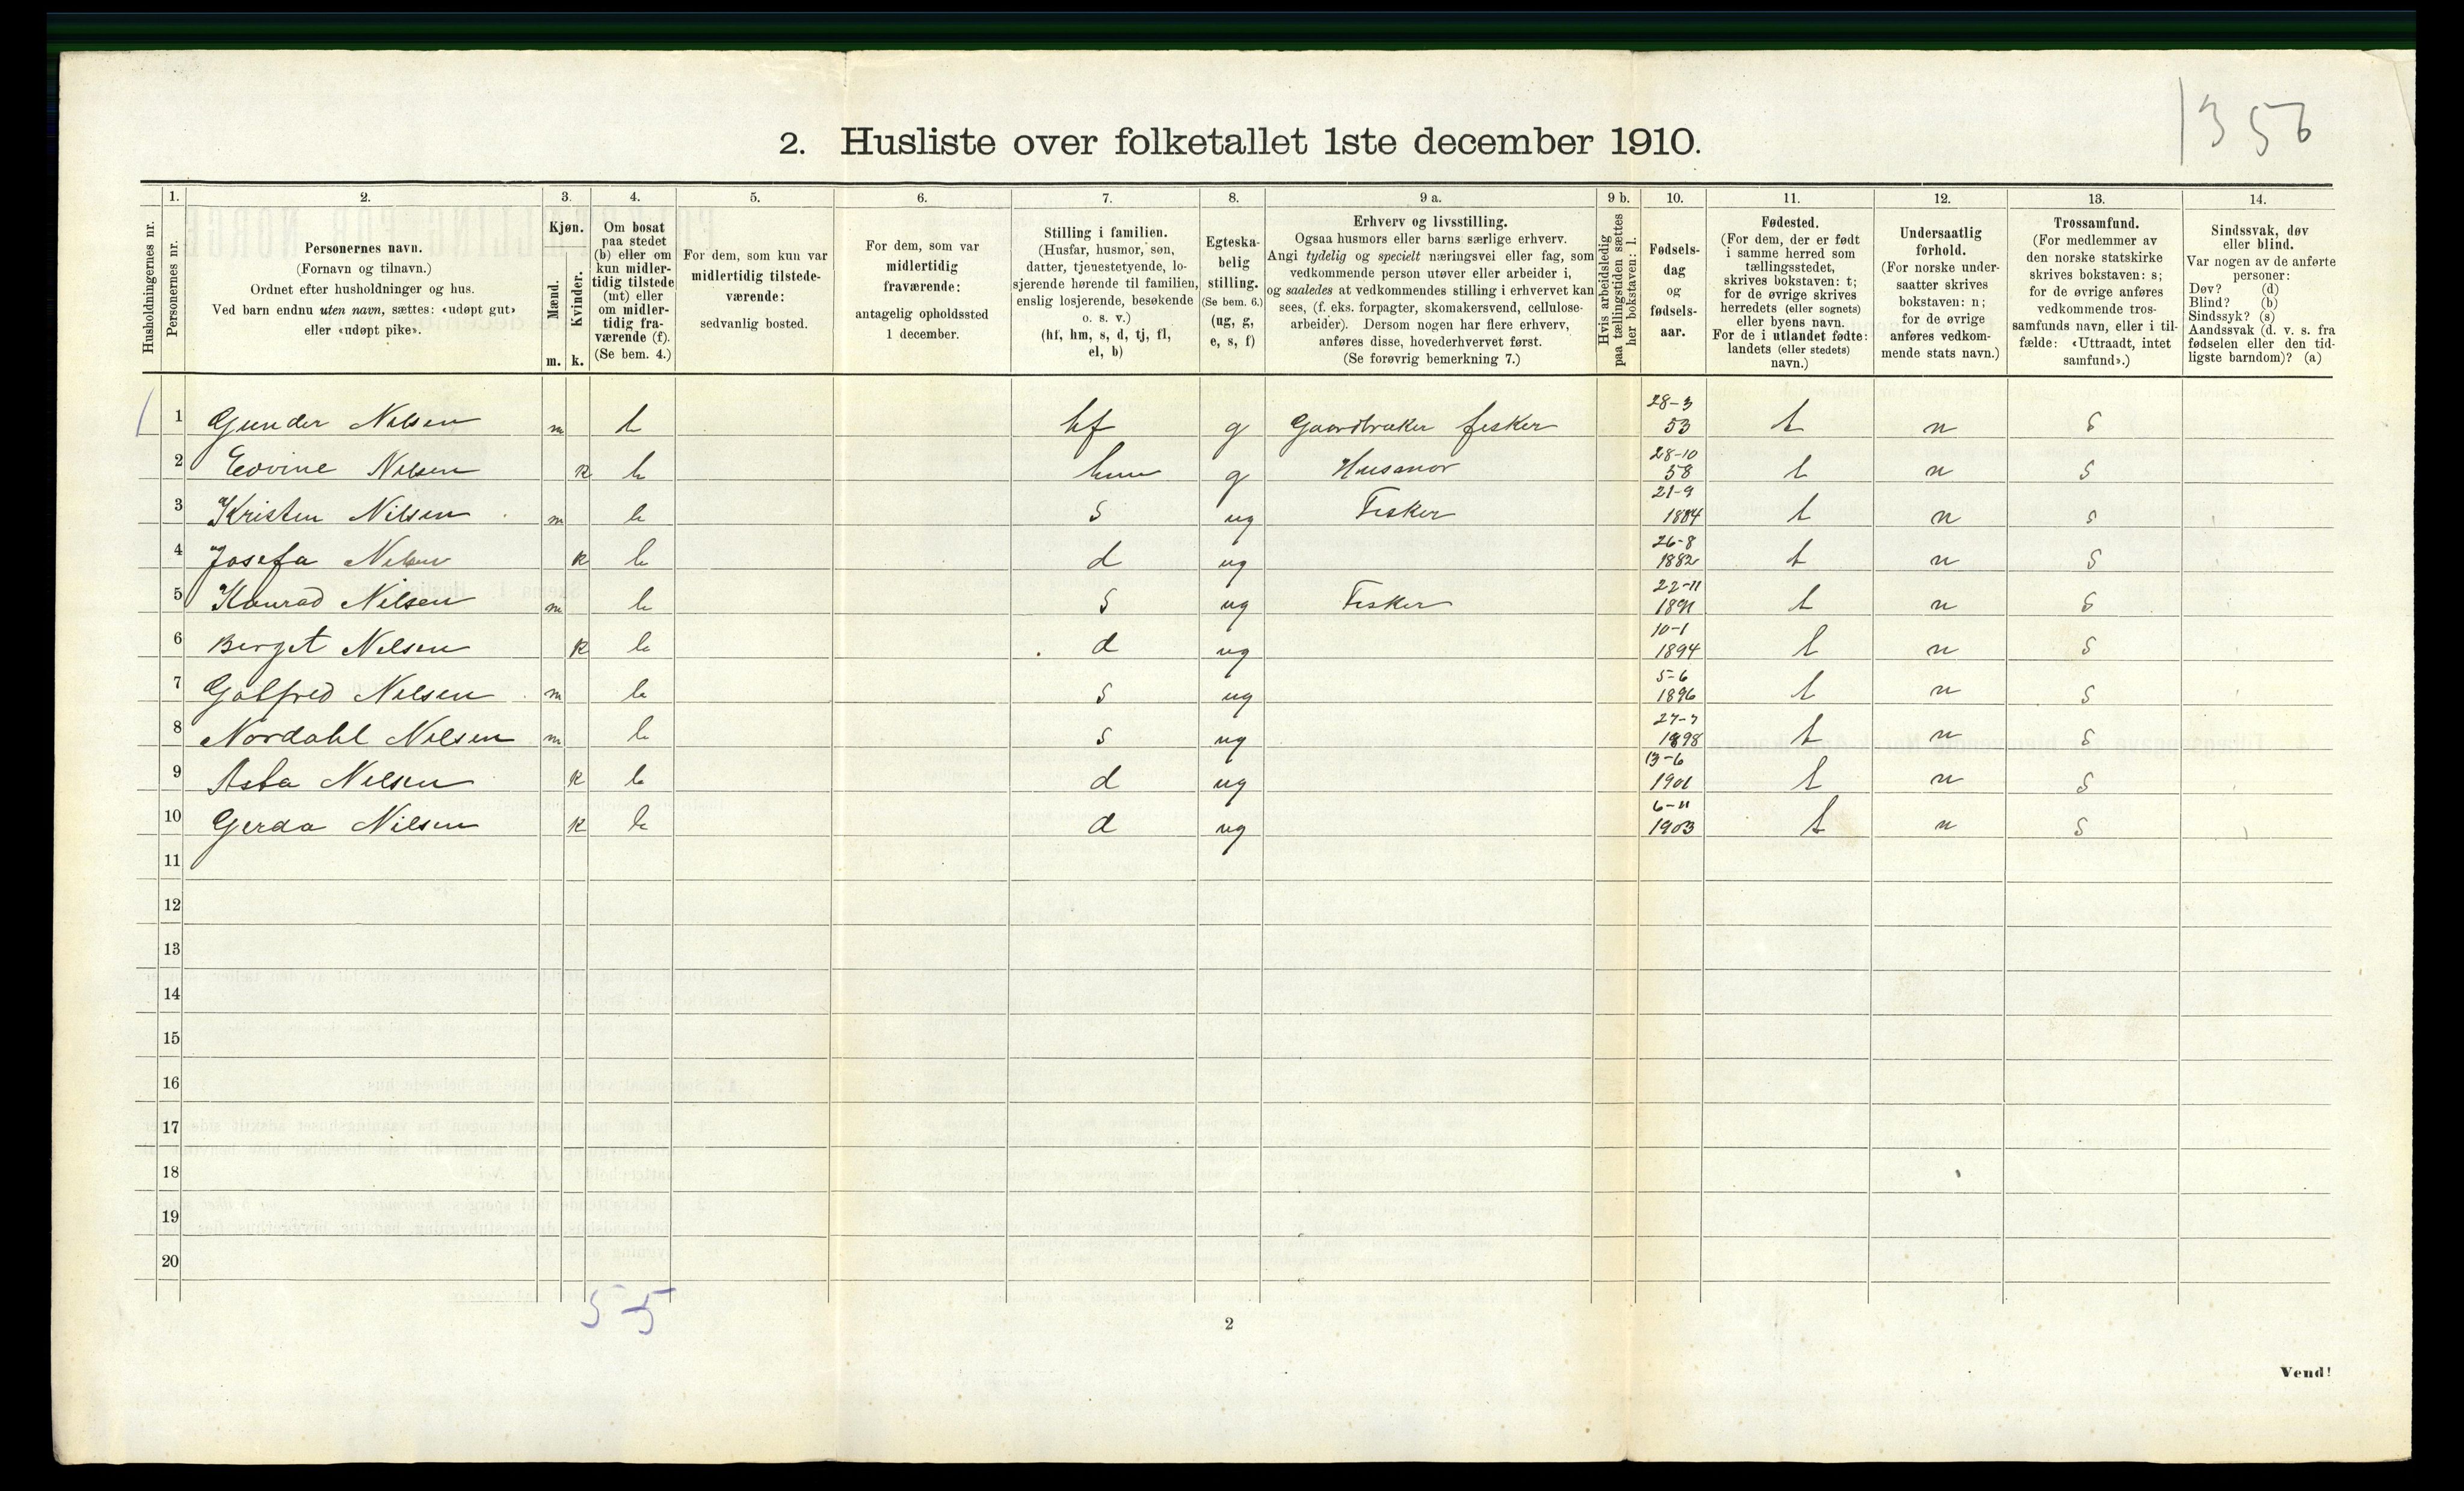 1356
2. Husliste over folketallet 1ste december 1910.
Husholdningernes nr.
1. Personernes nr.
2. Personernes navn.
(Fornavn og tilnavn.)
Ordnet efter husholdninger og hus.
Ved barn endnu uten navn, sættes: «udøpt gut»
eller «udøpt pike».
3. Kjøn.
Mænd. m.
Kvinder. k.
4. Om bosat
paa stedet
(b) eller om
kun midler-
tidig tilstede
(mt) eller
om midler-
tidig fra-
værende (f).
(Se bem. 4.)
5. For dem, som kun var
midlertidig tilstede-
værende:
sedvanlig bosted.
6. For dem, som var
midlertidig
fraværende:
antagelig opholdssted
1 december.
7. Stilling i familien.
(Husfar, husmor, søn,
datter, tjenestetyende, lo-
sjerende hørende til familien,
enslig losjerende, besøkende
o. s. v.)
(hf, hm, s, d, tj, fl,
el, b)
8. Egteska-
belig
stilling.
(Se bem. 6.)
(ug, g,
e, s, f)
9 a. Erhverv og livsstilling.
Ogsaa husmors eller barns særlige erhverv.
Angi tydelig og specielt næringsvei eller fag, som
vedkommende person utøver eller arbeider i,
og saaledes at vedkommendes stilling i erhvervet kan
sees, (f. eks. forpagter, skomakersvend, cellulose-
arbeider). Dersom nogen har flere erhverv,
anføres disse, hovederhvervet først.
(Se forøvrig bemerkning 7.)
9 b. Hvis arbeidsledig
paa tællingstiden sættes
her bokstaven: l.
10. Fødsels-
dag
og
fødsels-
aar.
11. Fødested.
(For dem, der er født
i samme herred som
tællingsstedet,
skrives bokstaven: t;
for de øvrige skrives
herredets (eller sognets)
eller byens navn.
For de i utlandet fødte:
landets (eller stedets)
navn.)
12. Undersaatlig
forhold.
(For norske under-
saatter skrives
bokstaven: n;
for de øvrige
anføres vedkom-
mende stats navn.)
13. Trossamfund.
(For medlemmer av
den norske statskirke
skrives bokstaven: s;
for de øvrige anføres
vedkommende tros-
samfunds navn, eller i til-
fælde: «Uttraadt, intet
samfund».)
14. Sindssvak, døv
eller blind.
Var nogen av de anførte
personer:
Døv? (d)
Blind? (b)
Sindssyk? (s)
Aandssvak (d. v. s. fra
fødselen eller den tid-
ligste barndom)? (a)
1 Gunder Nilsen m b hf g Gaardbruker fisker 28-3 53 t n s
2 Edvine Nilsen k b hm g Husmor 28-10 58 t n s
3 Kristen Nilsen m b s ug Fisker 21-9 1884 t n s
4 Josefa Nilsen k b d ug 26-8 1882 t n s
5 Konrad Nilsen m b s ug Fisker 22-11 1891 t n s
6 Berget Nilsen k b d ug 10-1 1894 t n s
7 Galfred Nilsen m b s ug 5-6 1896 t n s
8 Nordahl Nilsen m b s ug 27-7 1898 t n s
9 Asta Nilsen k b d ug 13-6 1901 t n s
10 Gerda Nilsen k b d ug 6-11 1903 t n s
11
12
13
14
15
16
17
18
19
20
5-5
2
Vend!